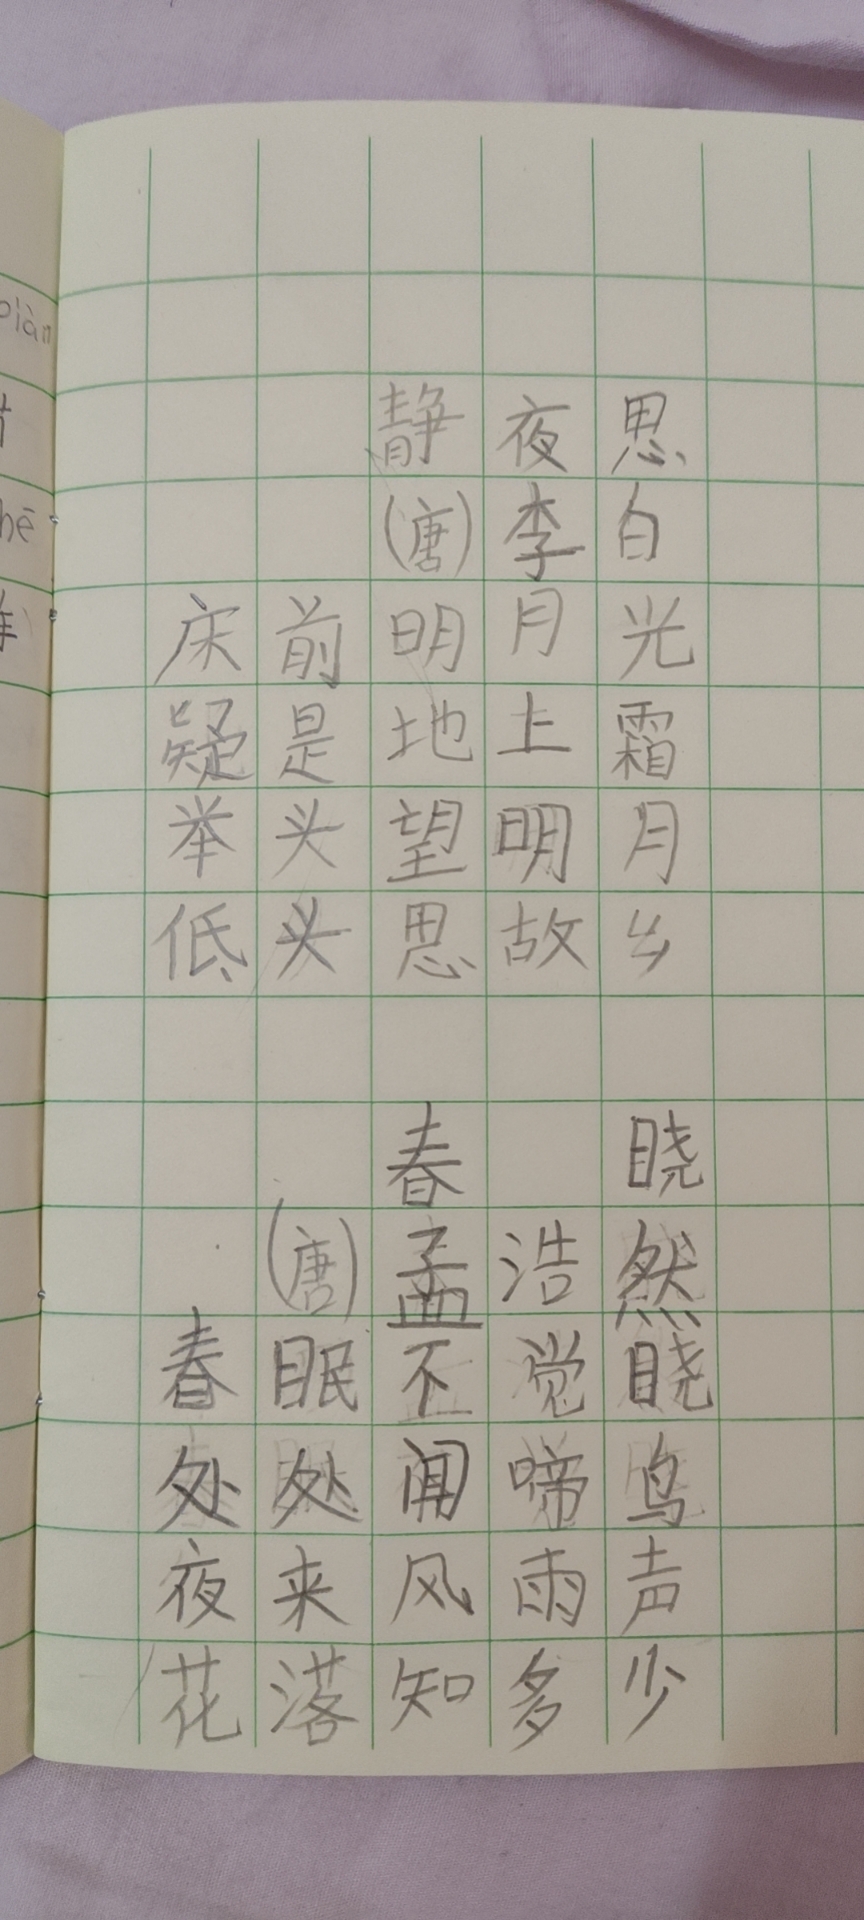 piàn
hē
静夜思
(唐)李白
床前明月光
疑是地上霜
举头望明月
低头思故乡
春晓
(唐)孟浩然
春眠不觉晓
处处闻啼鸟
夜来风雨声
花落知多少